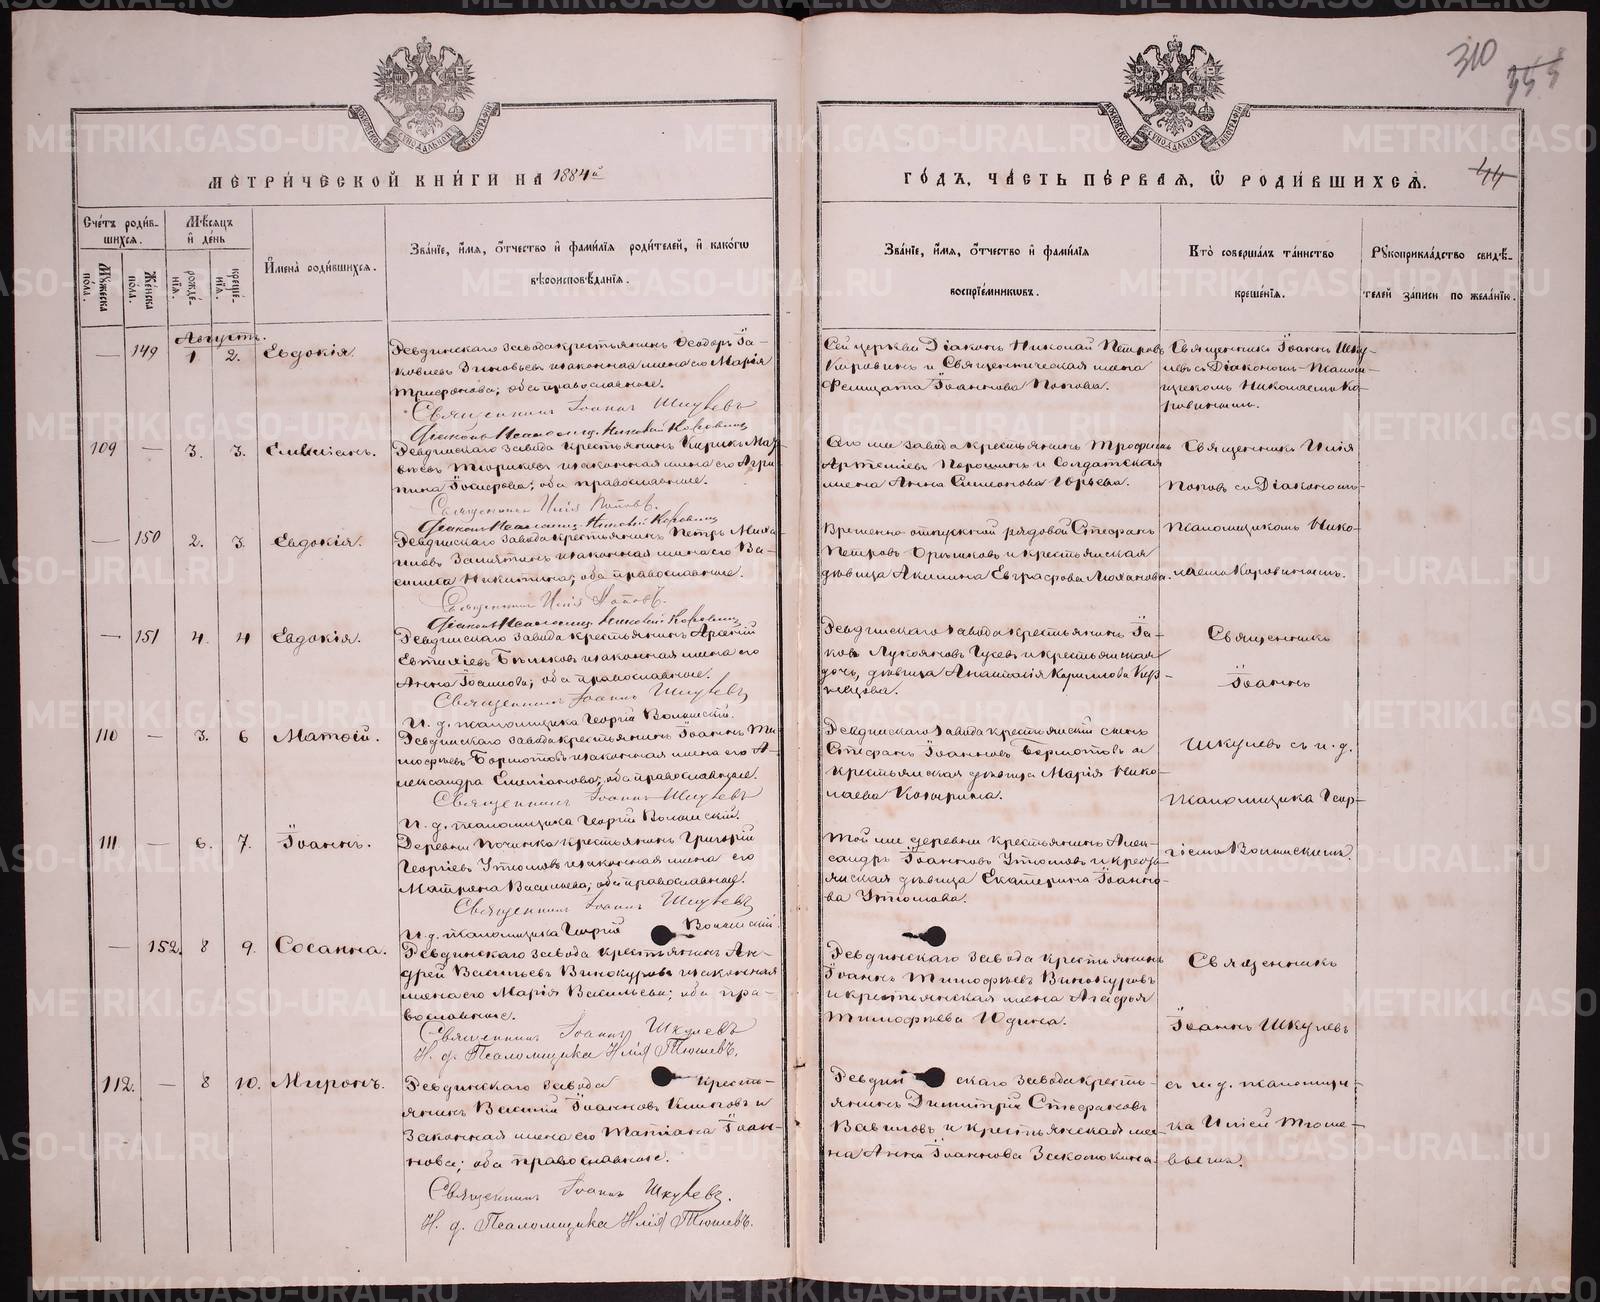 310
355
МЕТРИ́ЧЕСКОЙ КНИ́ГИ НА 1884й
ГО́ДЪ, ЧА́СТЬ ПЕ́РВАЯ, Ѡ РОДИ́ВШИХСЯ.
44
Сче́тъ роди́в-
шихся.
Мѣсяцъ
и де́нь
Мужеска пола.
Же́нска пола.
рожде́-
нія.
креще́-
нія.
Имена̀ роди́вшихся.
Зва́ніе, и́мя, о́тчество и фами́лія роди́телей, и како́гѡ
вѣроисповѣ́данія.
Зва́ніе, и́мя, о́тчество и фами́лія
воспріе́мникѡвъ.
Кто̀ соверша́лъ та́инство
креще́нія.
Рꙋкоприкла́дство свидѣ́-
телей за́писи по жела́нію.
Августъ.
— 149 1. 2. Евдокія.
Ревдинскаго завода крестьянинъ Ѳеодоръ Іа-
ковлевъ Зиновьевъ и законная жена его Марія
Трифонова; оба православные.
Священникъ Іоаннъ Шкулевъ
Діаконъ Псаломщ. Николай Коровинъ
Сей церкви Діаконъ Николай Петровъ
Коровинъ и Священническая жена
Фелицата Іоаннова Попова.
Священникъ Іоаннъ Шку-
левъ съ Діакономъ-Псалом-
щикомъ Николаемъ Ко-
ровинымъ.
109 — 3. 3. Емиліанъ.
Ревдинскаго завода крестьянинъ Кирикъ Мат-
вѣевъ Тюриковъ и законная жена его Агрип-
пина Іосифова; оба православные.
Священникъ Илія Поповъ.
Діаконъ Псаломщ. Николай Коровинъ
Того же завода крестьянинъ Трофимъ
Артеміевъ Порошинъ и Солдатская
жена Анна Симеонова Юрьева.
Священникъ Илія
Поповъ съ Діакономъ-
— 150 2. 3. Евдокія.
Ревдинскаго завода крестьянинъ Петръ Миха-
иловъ Замятинъ и законная жена его Ва-
силиса Никитина; оба православные.
Священникъ Илія Поповъ.
Діаконъ Псаломщ. Николай Коровинъ
Временно-отпускной рядовой Стефанъ
Петровъ и крестьянская
дѣвица Акилина Евграфова
Псаломщикомъ Нико-
лаемъ Коровинымъ.
— 151 4. 4 Евдокія.
Ревдинскаго завода крестьянинъ Арсеній
Евтихіевъ Бѣлковъ и законная жена его
Анна Іоаннова; оба православные.
Священникъ Іоаннъ Шкулевъ
И. д. псаломщика Георгій Волынскій.
Ревдинскаго завода крестьянинъ Іа-
ковъ Лукояновъ Гусевъ и крестьянская
дочь, дѣвица Анастасія Кириллова Куз-
нецова.
Священникъ
Іоаннъ
110 — 3. 6 Матѳій.
Ревдинскаго завода крестьянинъ Іоаннъ Ти-
моѳеевъ Бормотовъ и законная жена его А-
лександра Емиліанова; оба православные.
Священникъ Іоаннъ Шкулевъ
И. д. псаломщика Георгій Волынскій.
Ревдинскаго завода крестьянскій сынъ
Стефанъ Іоанновъ Бормотовъ и
крестьянская дѣвица Марія Нико-
лаева Козырина.
Шкулевъ съ и. д.
Псаломщика Геор-
111 — 6. 7. Іоаннъ.
Деревни Починка крестьянинъ Григорій
Георгіевъ Утюмовъ и законная жена его
Матрона Васильева; оба православные.
Священникъ Іоаннъ Шкулевъ
И. д. псаломщика Георгій Волынскій.
Той же деревни крестьянинъ Алек-
сандръ Іоанновъ Утюмовъ и кресть-
янская дѣвица Екатерина Іоанно-
ва Утюмова.
гіемъ Волынскимъ.
— 152. 8 9. Сосанна.
Ревдинскаго завода крестьянинъ Ан-
дрей Васильевъ Винокуровъ и законная
жена его Марія Васильева; оба пра-
вославные.
Священникъ Іоаннъ Шкулевъ
И. д. Псаломщика Илія Тюшевъ.
Ревдинскаго завода крестьянинъ
Іоаннъ Тимофѣевъ Винокуровъ
и крестьянская жена Агафья
Тимофѣева Юдина.
Священникъ
Іоаннъ Шкулевъ
112. — 8 10. Миронъ.
Ревдинскаго завода кресть-
янинъ Василій Іоанновъ Климовъ и
законная жена его Татіана Іоан-
нова; оба православные.
Священникъ Іоаннъ Шкулевъ.
И. д. Псаломщика Илія Тюшевъ.
Ревдинскаго завода кресть-
янинъ Димитрій Стефановъ
Вавиловъ и крестьянская же-
на Анна Іоаннова Закомокина.
съ и. д. псаломщи-
ка Иліей Тюше-
вымъ.
METRIKI.GASO-URAL.RU